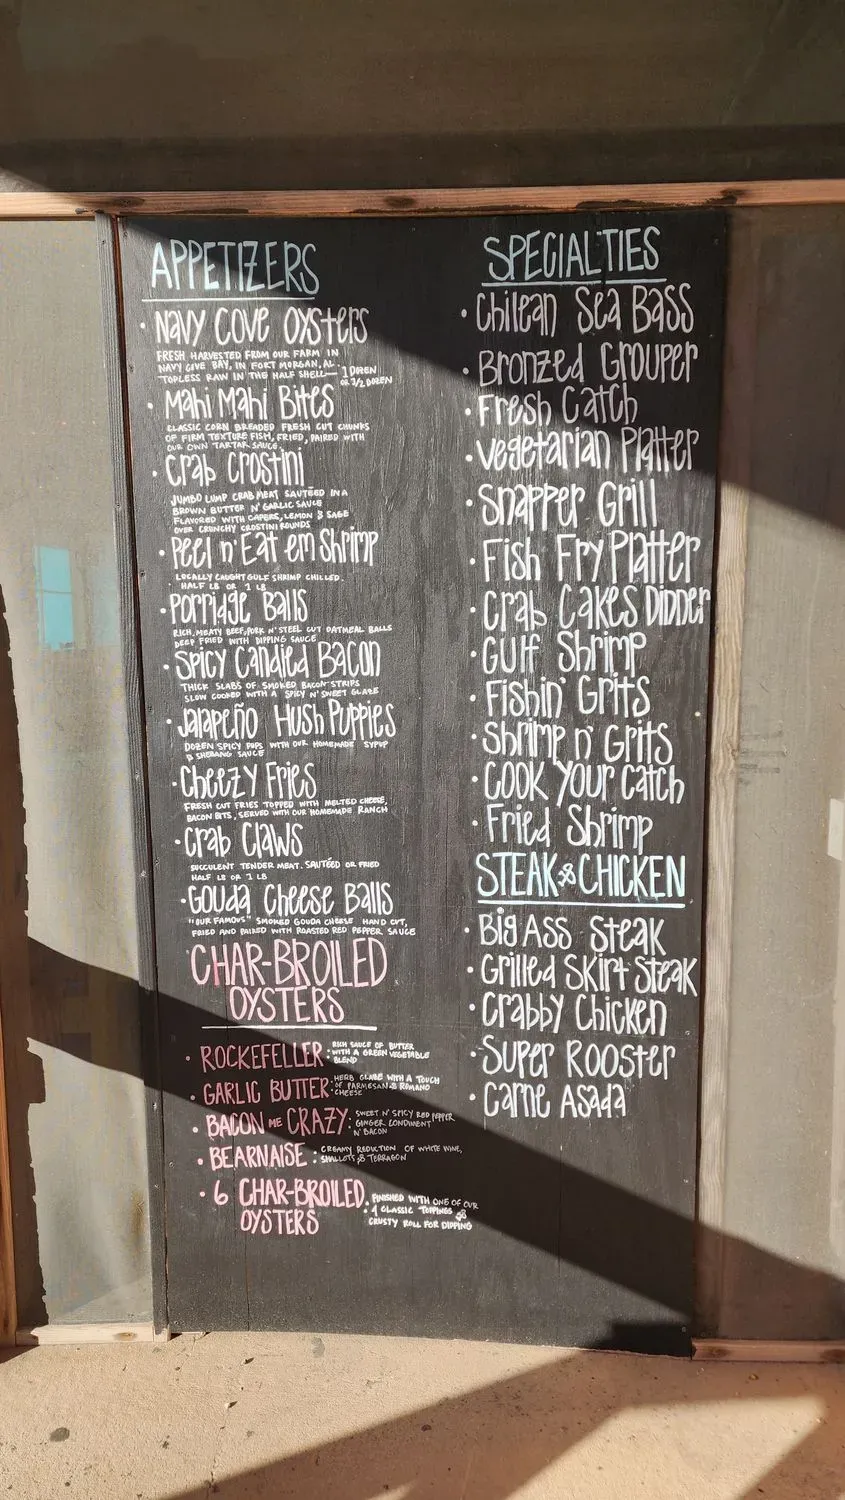 APPETIZERS
• NAVY COVE OYSTERS
FRESH HARVESTED FROM OUR FARM IN
NAVY COVE BAY, IN FORT MORGAN, AL.
TOPLESS RAW IN THE HALF SHELL— 1 DOZEN
OR 1/2 DOZEN
• MAHI MAHI BITES
CLASSIC CORN BREADED FRESH CUT CHUNKS
OF FIRM TEXTURE FISH, FRIED, PAIRED WITH
OUR OWN TARTAR SAUCE
• CRAB CROSTINI
JUMBO LUMP CRAB MEAT SAUTÉED IN A
BROWN BUTTER N' GARLIC SAUCE
FLAVORED WITH CAPERS, LEMON & SAGE
OVER CRUNCHY CROSTINI ROUNDS
• PEEL N' EAT EM SHRIMP
LOCALLY CAUGHT GULF SHRIMP CHILLED.
HALF LB OR 1 LB
• PORRIDGE BALLS
RICH, MEATY BEEF, PORK N' STEEL CUT OATMEAL BALLS
DEEP FRIED WITH DIPPING SAUCE
• SPICY CANDIED BACON
THICK SLABS OF SMOKED BACON STRIPS
SLOW COOKED WITH A SPICY N' SWEET GLAZE
• JALAPEÑO HUSH PUPPIES
DOZEN SPICY PUPS WITH OUR HOMEMADE SYRUP
& SHEBANG SAUCE
• CHEEZY FRIES
FRESH CUT FRIES TOPPED WITH MELTED CHEESE,
BACON BITS, SERVED WITH OUR HOMEMADE RANCH
• CRAB CLAWS
SUCCULENT TENDER MEAT. SAUTÉED OR FRIED
HALF LB OR 1 LB
• GOUDA CHEESE BALLS
"OUR FAMOUS" SMOKED GOUDA CHEESE HAND CUT,
FRIED AND PAIRED WITH ROASTED RED PEPPER SAUCE
CHAR-BROILED
OYSTERS
• ROCKEFELLER: RICH SAUCE OF BUTTER
WITH A GREEN VEGETABLE
BLEND
• GARLIC BUTTER: HERB GLAZE WITH A TOUCH
OF PARMESAN & ROMANO
CHEESE
• BACON ME CRAZY: SWEET N' SPICY RED PEPPER
GINGER CONDIMENT
N' BACON
• BEARNAISE: CREAMY REDUCTION OF WHITE WINE,
SHALLOTS & TERRAGON
• 6 CHAR-BROILED
OYSTERS
: FINISHED WITH ONE OF OUR
4 CLASSIC TOPPINGS &
CRUSTY ROLL FOR DIPPING
SPECIALTIES
• Chilean Sea Bass
• Bronzed Grouper
• Fresh Catch
• Vegetarian Platter
• Snapper Grill
• Fish Fry Platter
• Crab Cakes Dinner
• Gulf Shrimp
• Fishin' Grits
• Shrimp n' Grits
• Cook Your Catch
• Fried Shrimp
STEAK & CHICKEN
• Big Ass Steak
• Grilled Skirt Steak
• Crabby Chicken
• Super Rooster
• Carne Asada